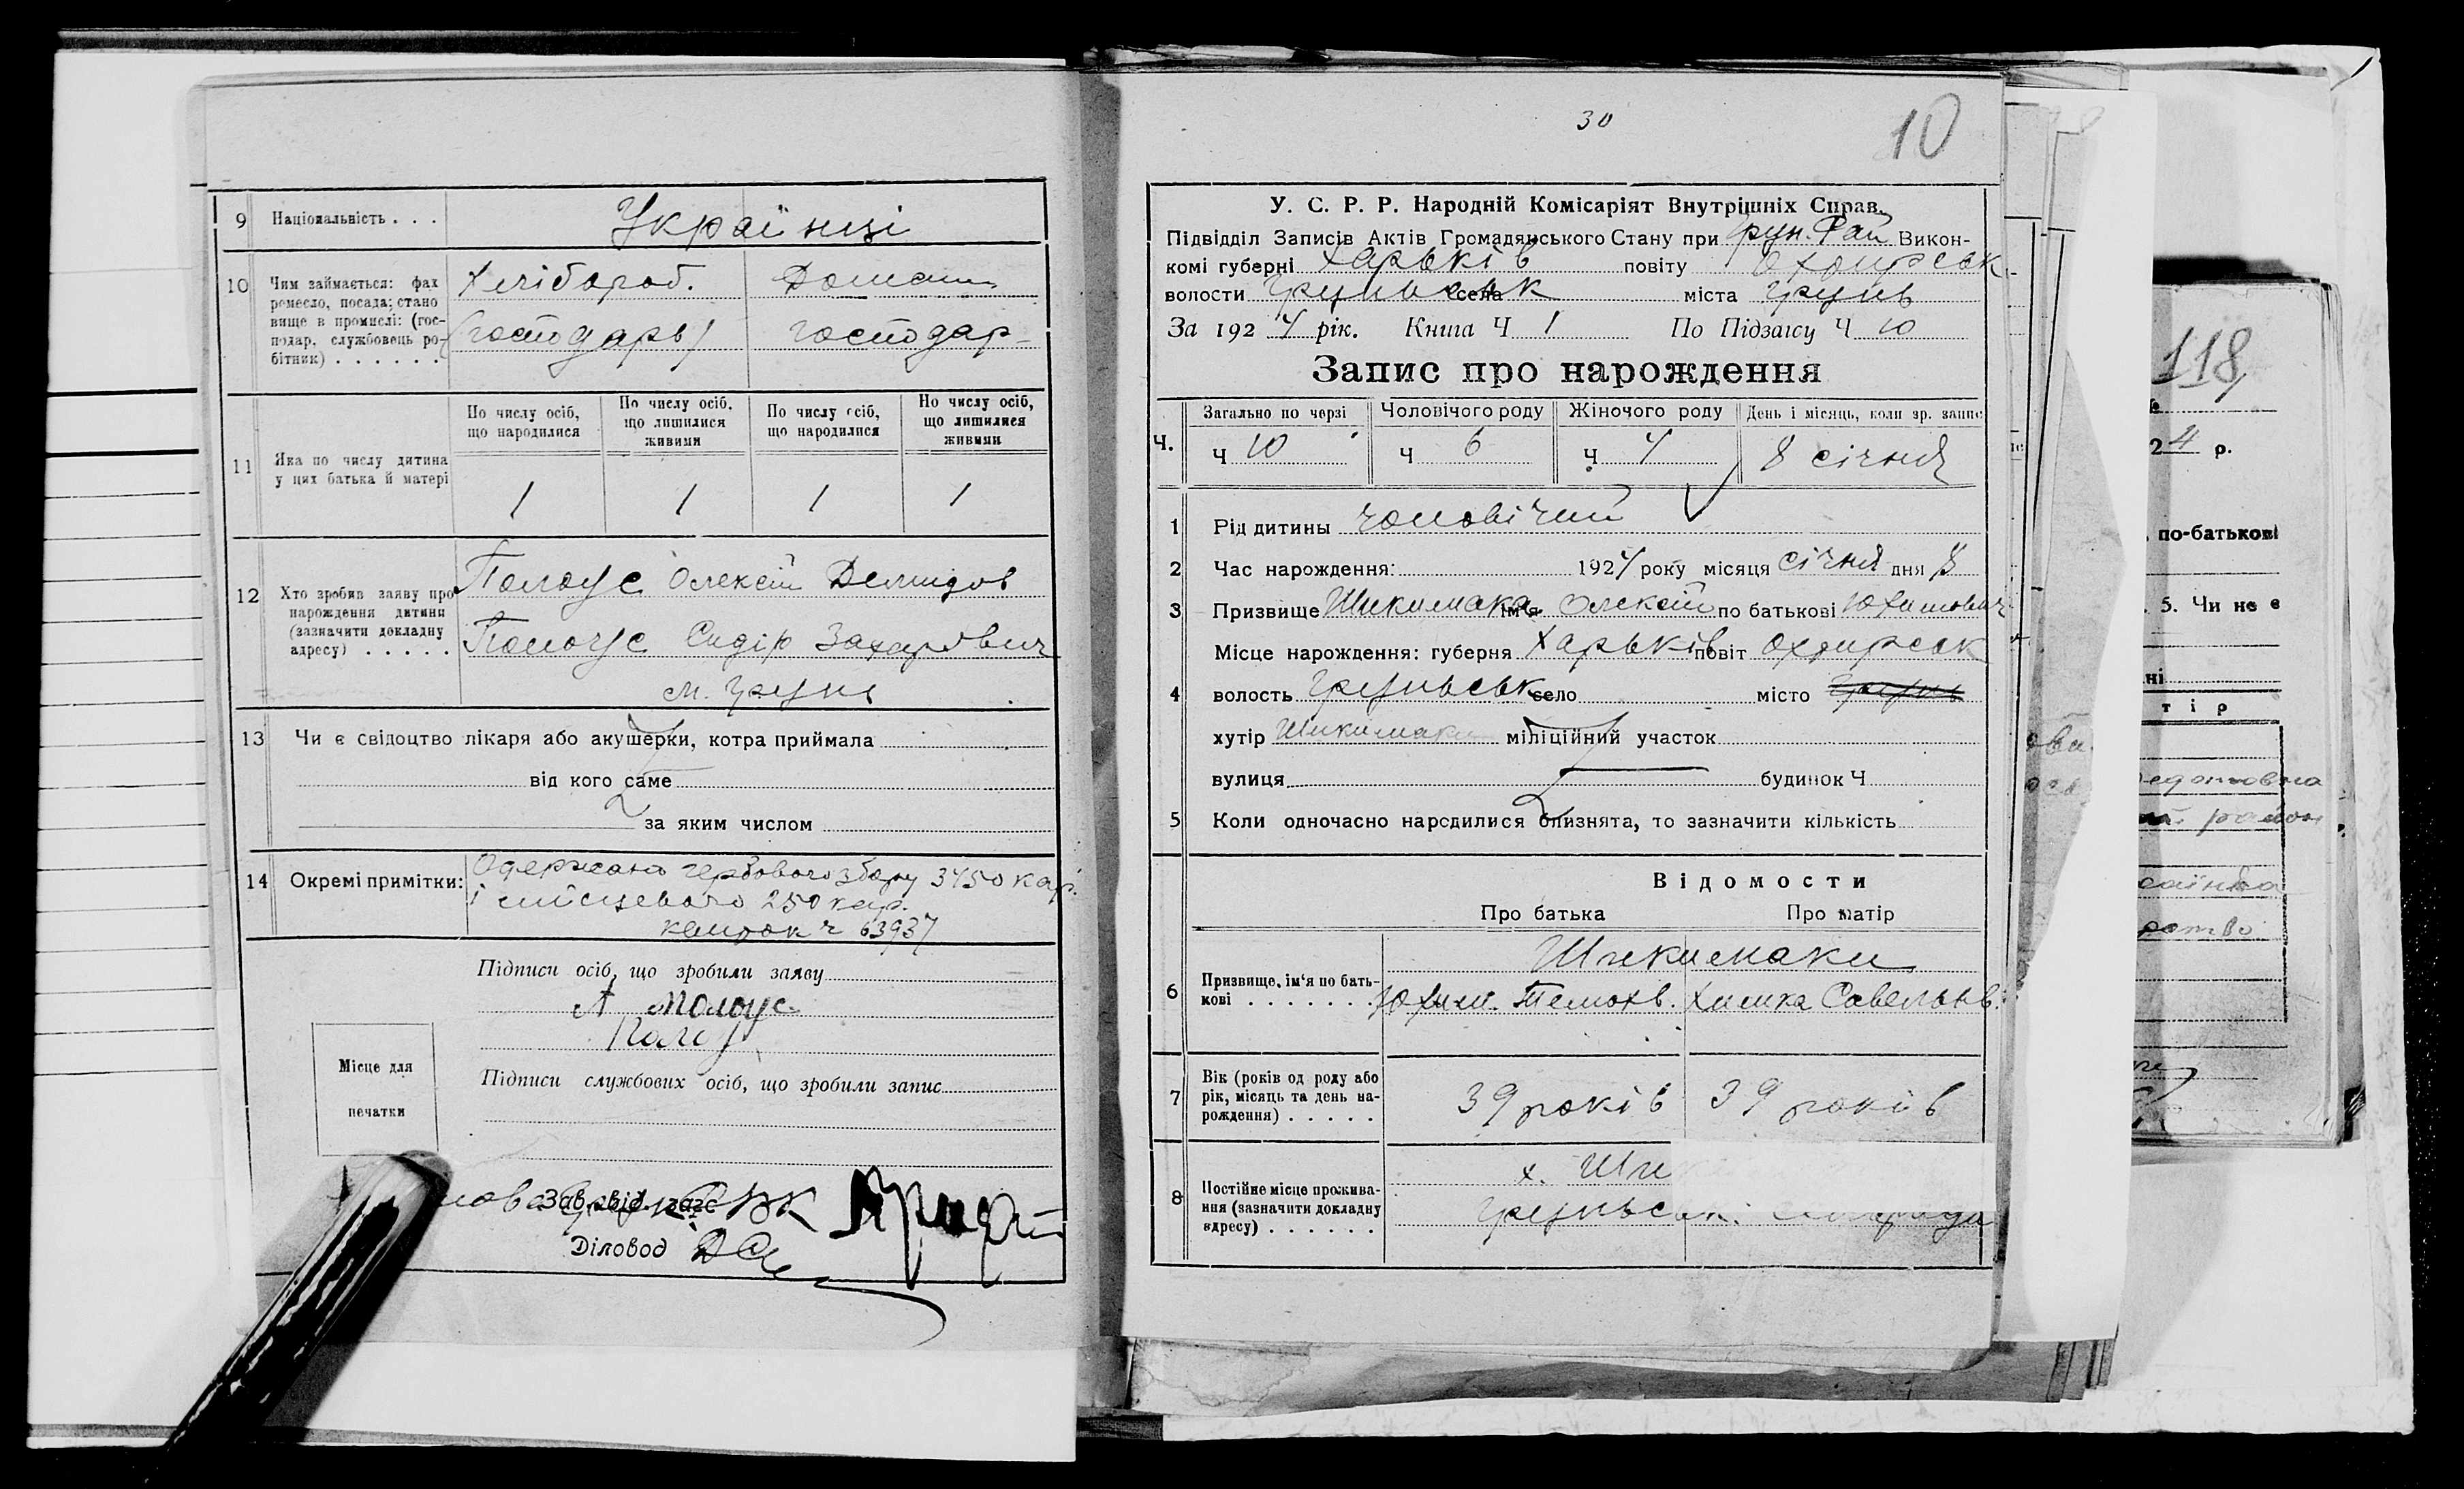 9 Національність . . . Українці
10 Чим займається: фах
ремесло, посада; стано
вище в промислі: (гос-
подар, службовець ро-
бітник) . . . . . .
Хлібороб. Домашн
(господарь) господар-
По числу осіб,
що народилися
По числу осіб,
що лишилися
живими
По числу осіб,
що народилися
По числу осіб,
що лишилися
живими
11 Яка по числу дитина
у цих батька й матері
1 1 1 1
12 Хто зробив заяву про
нарождення дитини
(зазначити докладну
адресу) . . . . .
Полоус Олексій Демидов
Полоус Сидір Захарович
м. Грунь
13 Чи є свідоцтво лікаря або акушерки, котра приймала
від кого саме
за яким числом
14 Окремі примітки:
Одержано гербового збору 3750 кар.
і місцевого 250 кар.
квиток ч 63937
Підписи осіб, що зробили заяву
А Полоус
Полоу
Підписи службових осіб, що зробили запис
Місце для
печатки
Зав. від. загс
Діловод
30
10
У. С. Р. Р. Народній Комісаріят Внутрішніх Справ.
Підвідділ Записів Актів Громадянського Стану при Грун. Рай Викон-
комі губерні Харьків повіту Охтирськ
волости Груньськ села міста Грунь
За 1924 рік. Книга Ч 1 По Підзапису Ч 10
Запис про нарождення
Загально по черзі Чоловічого роду Жіночого роду День і місяць, коли зр. запис
Ч. Ч 10 Ч 6 Ч 4 8 січня
1 Рід дитини чоловічий
2 Час нарождення: 1924 року місяця січня дня 8
3 Призвище Шикимака ім'я Олексій по батькові Юхимович
Місце нарождення: губерня Харьків повіт Охтирськ
4 волость Груньськ село місто Грунь
хутір Шикимаки міліційний участок
вулиця будинок Ч
5 Коли одночасно народилися близнята, то зазначити кількість
Відомости
Про батька Про матір
6 Призвище, ім'я по бать-
кові . . . . . . .
Шикимаки
Юхим. Тимохв. Химка Савельєв.
7 Вік (років од роду або
рік, місяць та день на-
рождення) . . . . .
39 років 39 років
8 Постійне місце прожива-
ння (зазначити докладну
адресу) . . . . . .
х. Ши
Груньськ.
118
24 р.
по-батькові
5. Чи не є
ні
тір
район